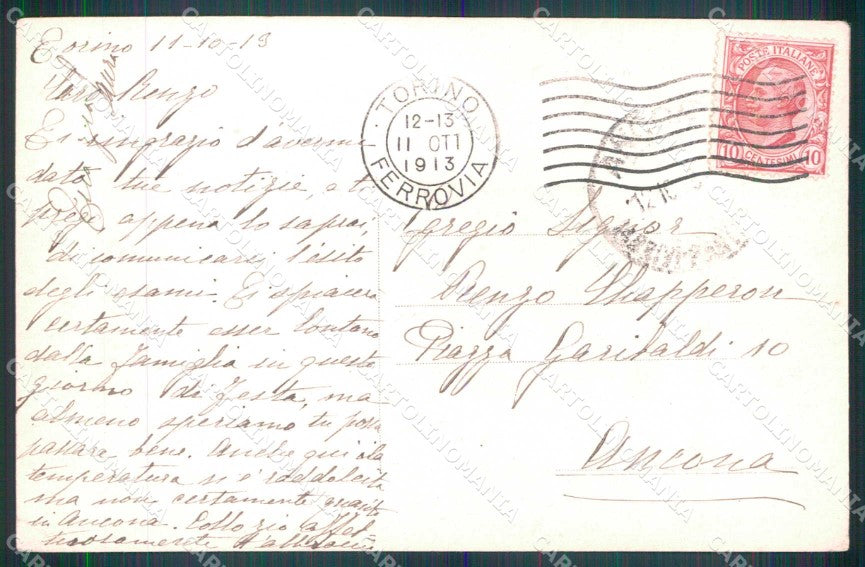 Torino 11-10-13
Caro Renzo
Ti ringrazio d'avermi
dato tue notizie, e ti
prego, appena lo saprai,
di comunicarci l'esito
degli esami. Ti spiacerà
certamente esser lontano
dalla famiglia in questo
giorno di festa, ma
almeno speriamo tu possa
passare bene. Anche qui la
temperatura si è raddolcita
ma non certamente quanto
in Ancona. Collo zio affet-
tuosamente t'abbraccio
TORINO
12-13
11 OTT
1913
FERROVIA
POSTE ITALIANE
10 CENTESIMI 10
12
Egregio Signor
Renzo Chapperon
Piazza Garibaldi 10
Ancona
CARTOLINOMANIA